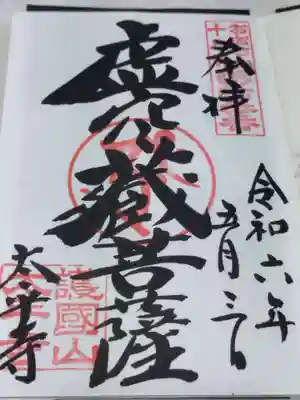 奉拝
令和六年
五月三日
虚空蔵菩薩
太平寺
護國山